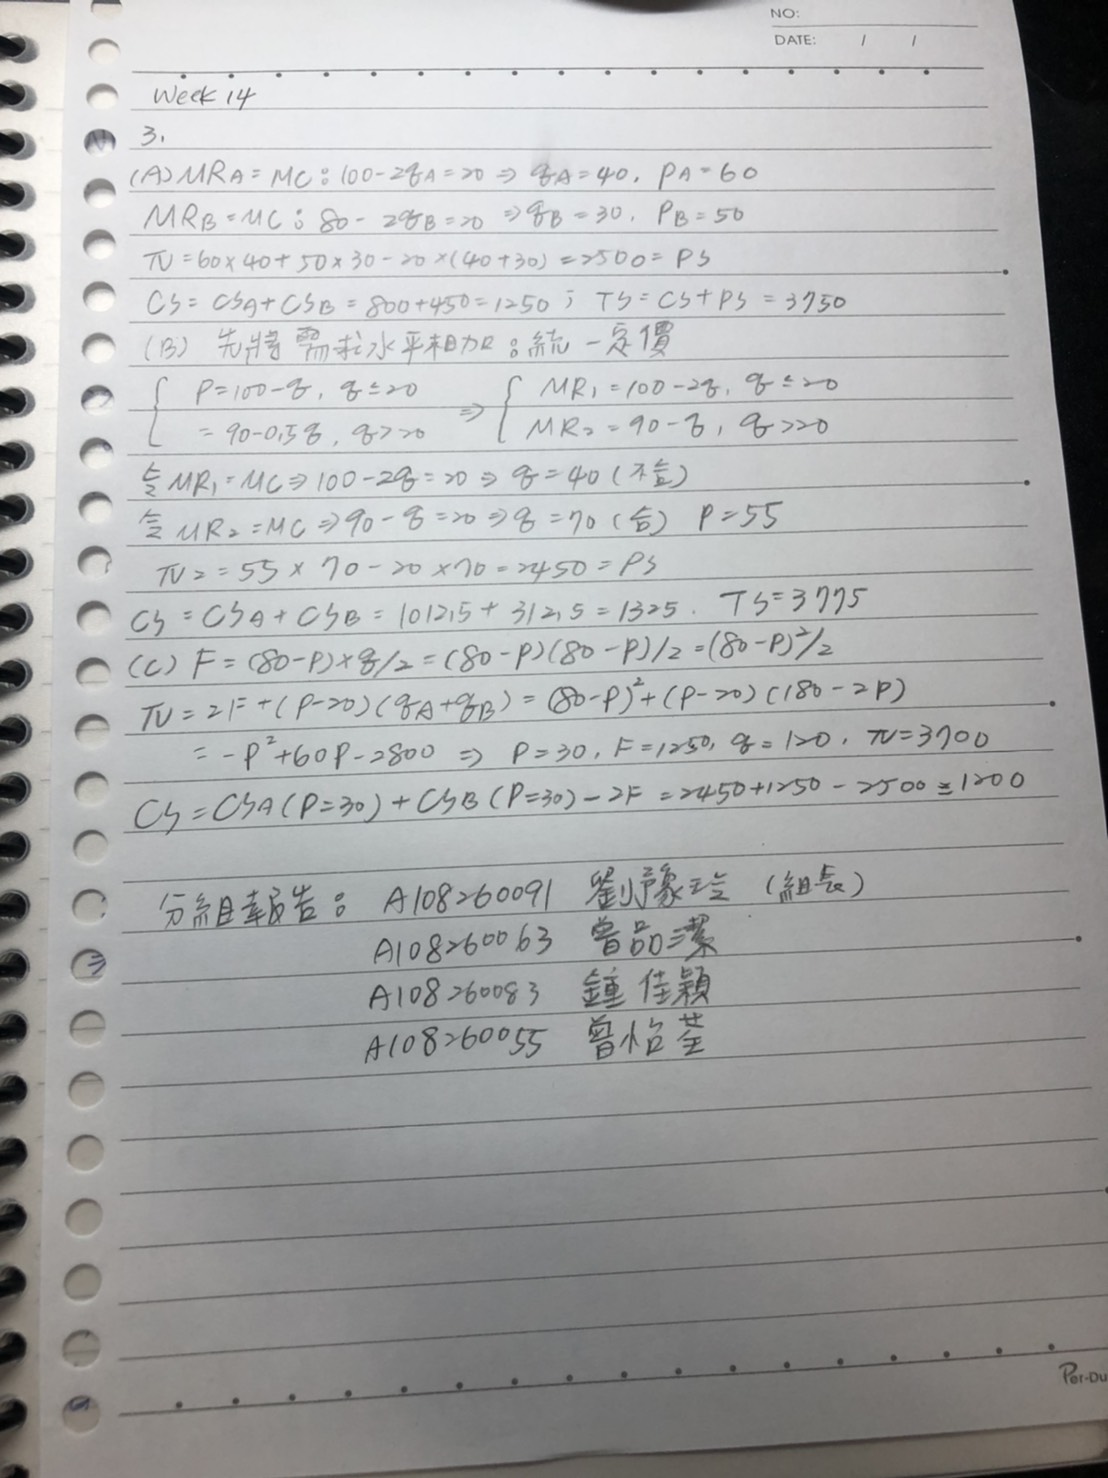 NO:
DATE: / /
Week 14
3.
(A) MRA = MC : 100-2qA = 20 ⇒ qA = 40, PA = 60
MRB = MC : 80-2qB = 20 ⇒ qB = 30, PB = 50
π = 60×40+50×30-20×(40+30) = 2500 = PS
CS = CSA+CSB = 800+450 = 1250 ; TS = CS+PS = 3750
(B) 先將需求水平相加 : 統一定價
{ P=100-q, q≤20 ⇒ { MR1 = 100-2q, q≤20
= 90-0.5q, q>20 MR2 = 90-q, q>20
令MR1=MC ⇒ 100-2q=20 ⇒ q=40 (不合)
令MR2=MC ⇒ 90-q=20 ⇒ q=70 (合) P=55
π2 = 55×70-20×70 = 2450 = PS
CS = CSA+CSB = 1012.5+312.5 = 1325. TS=3775
(C) F = (80-P)×q/2 = (80-P)(80-P)/2 = (80-P)²/2
π = 2F+(P-20)(qA+qB) = (80-P)²+(P-20)(180-2P)
= -P²+60P-2800 ⇒ P=30, F=1250, q=120, π=3700
CS = CSA(P=30)+CSB(P=30)-2F = 2450+1250-2500 = 1200
分組報告: A108260091 劉豫玲 (組長)
A108260063 曾品潔
A108260083 鍾佳穎
A108260055 曾怡荃
Per-Du